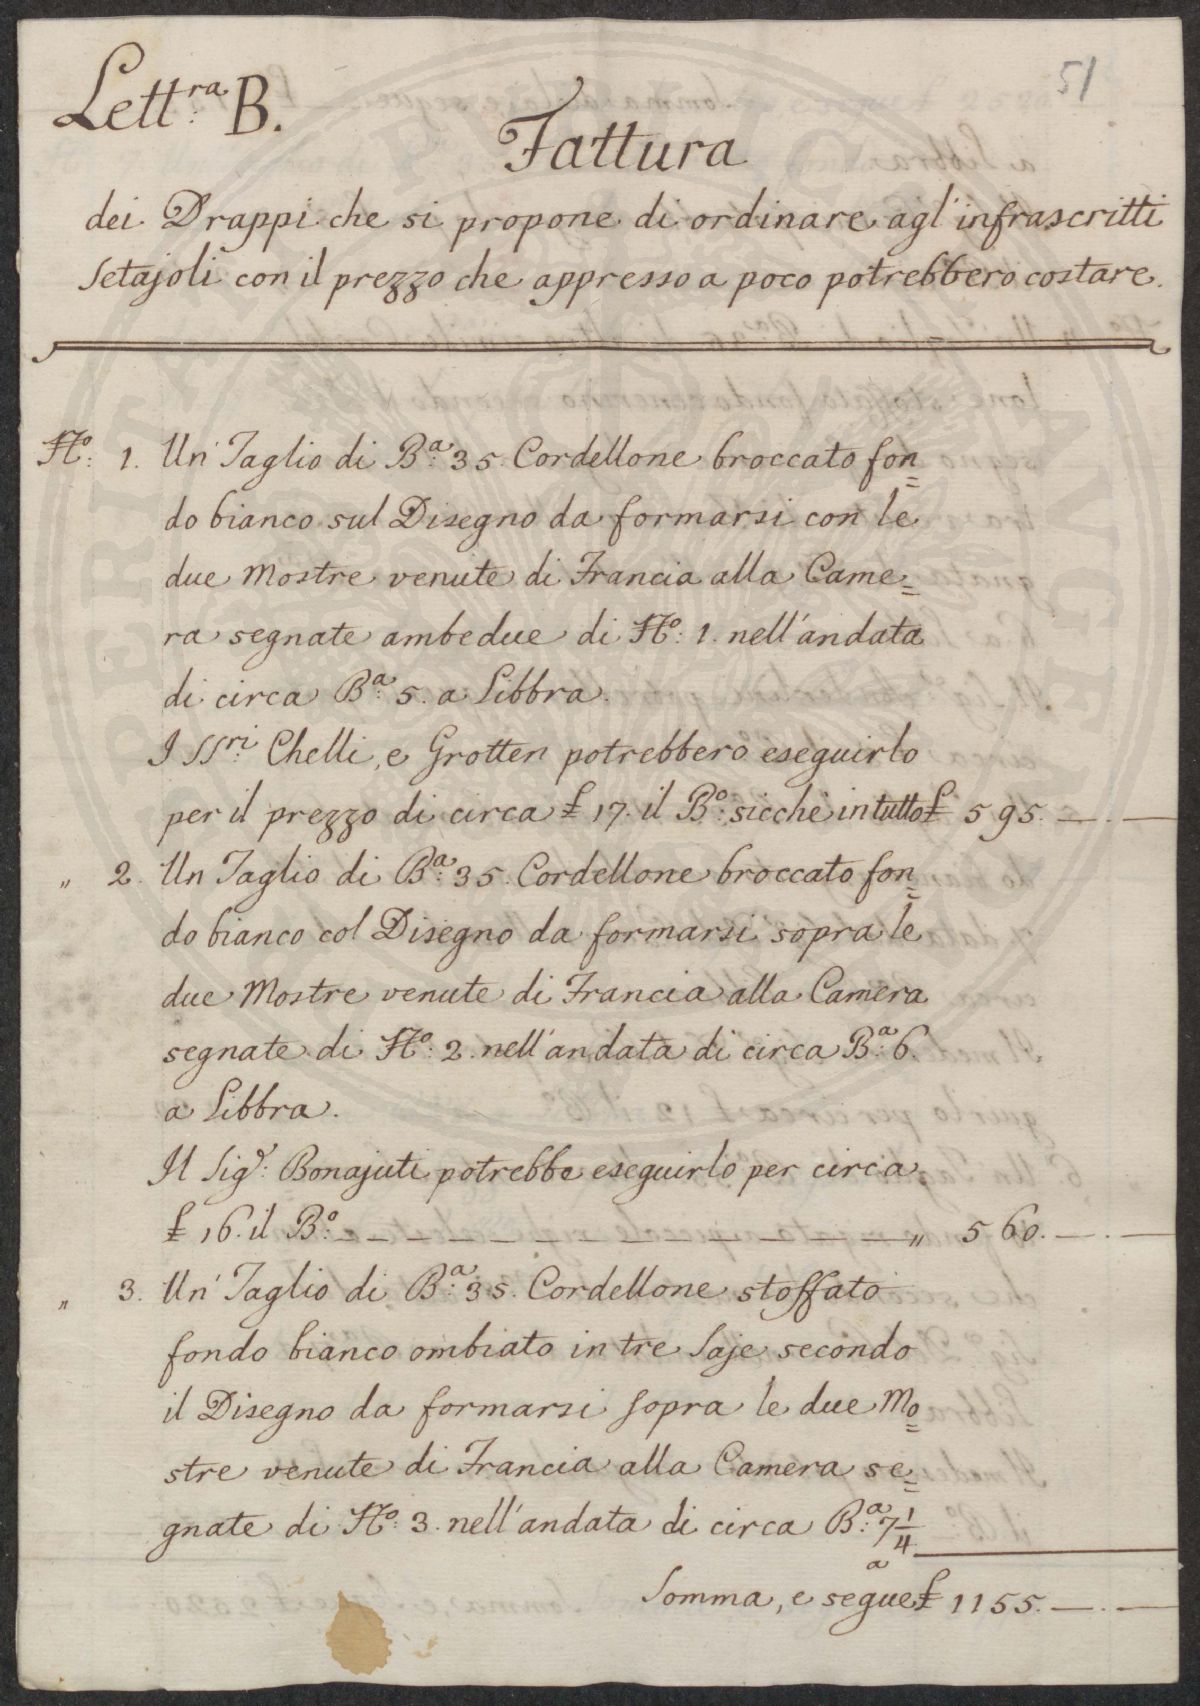 51
Lett.ra B.
Fattura
dei Drappi che si propone di ordinare agl'infrascritti
Setajoli con il prezzo che appresso a poco potrebbero costare.
N.o: 1. Un Taglio di B.a 35. Cordellone broccato fon=
do bianco sul Disegno da formarsi con le
due Mostre venute di Francia alla Came=
ra segnate ambedue di N.o: 1. nell'andata
di circa B.a 5. a Libbra.
I SS.ri Chelli, e Grotten potrebbero eseguirlo
per il prezzo di circa £ 17. il B.o: sicchè in tutto £ 595. — . —
" 2. Un Taglio di B.a 35. Cordellone broccato fon=
do bianco col Disegno da formarsi sopra le
due Mostre venute di Francia alla Camera
segnate di N.o: 2. nell'andata di circa B.a 6.
a Libbra.
Il Sig.r: Bonajuti potrebbe eseguirlo per circa
£ 16. il B.o: — — — — — — — — " 560. — . —
" 3. Un Taglio di B.a 35. Cordellone stoffato
fondo bianco ombiato in tre Saje secondo
il Disegno da formarsi sopra le due Mo=
stre venute di Francia alla Camera se=
gnate di N.o: 3. nell'andata di circa B.a 7 1/4
a
Somma, e segue £ 1155. — . —